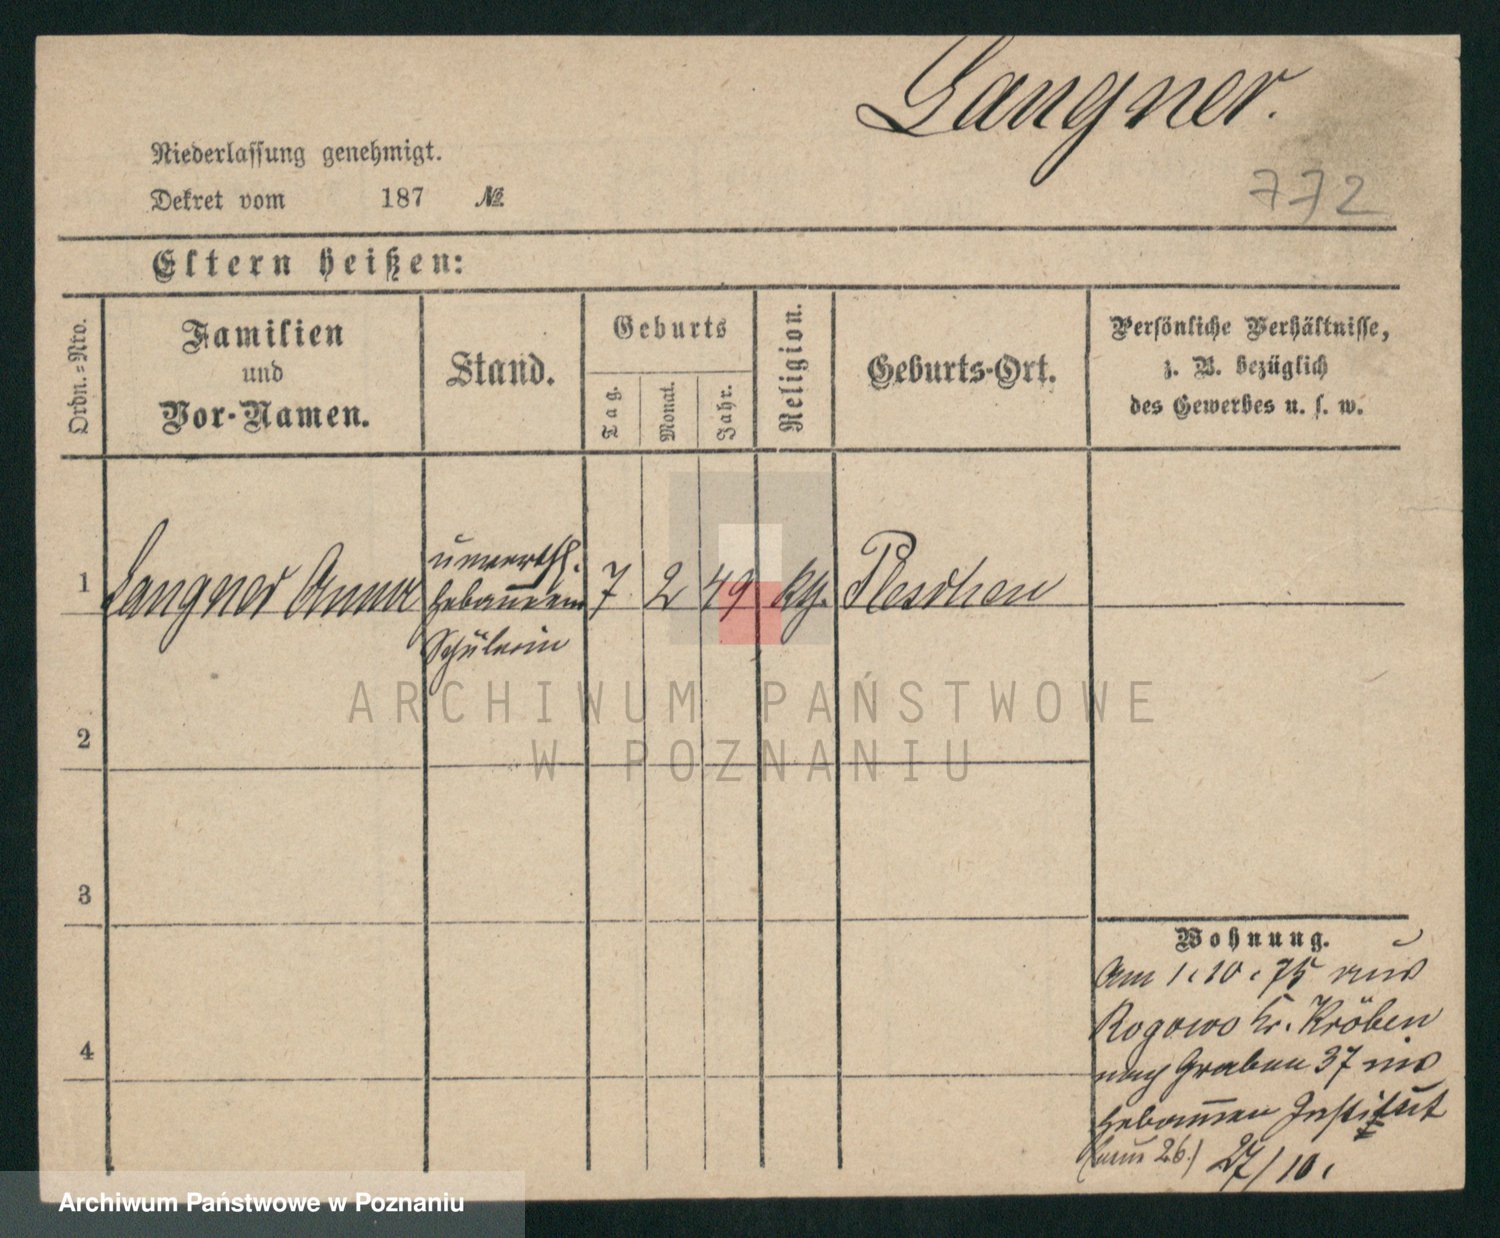 Langner.
772
Niederlassung genehmigt.
Dekret vom 187 №
Eltern heißen:
Ordn.-Nro.
Familien
und
Vor-Namen.
Stand.
Geburts
Tag.
Monat.
Jahr.
Religion.
Geburts-Ort.
Persönliche Verhältnisse,
z. B. bezüglich
des Gewerbes u. s. w.
unverehl.
1 Langner Anna Hebammen 7 2 49 kth. Pleschen
Schülerin
ARCHIWUM PAŃSTWOWE
W POZNANIU
2
3
4
Wohnung.
Am 1.10.75 aus
Rogowo Kr. Kröben
nach Graben 37 ins
Hebammen Institut
26.) 27/10.
Archiwum Państwowe w Poznaniu